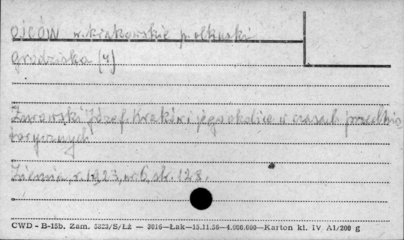 OJCÓW w. krakowskie p. olkuski
grodziska (4)
Żurowski Józef. Kraków i jego okolice w czasach przedhis
torycznych
Ziemia, r. 1923, nr 6, str. 128.
CWD - B-15b. Zam. 5523/S/Lż — 3016—Łok—15.11.56—4.000.000—Karton kl. IV A1/200 g